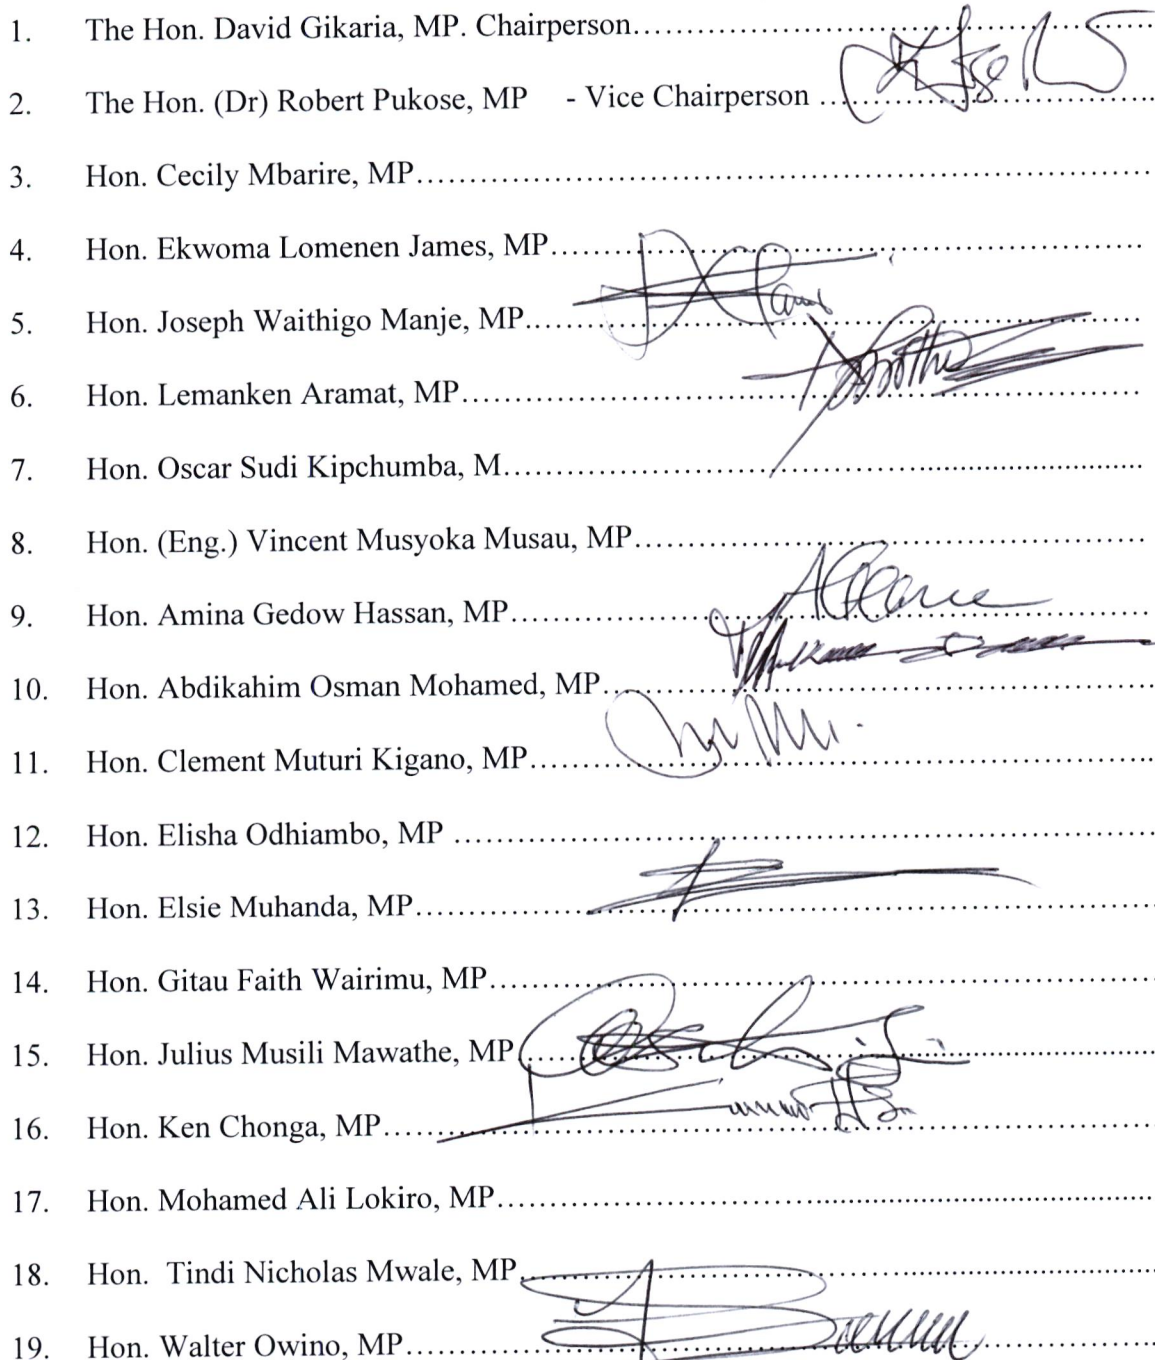 1. The Hon. David Gikaria, MP. Chairperson..........
2. The Hon. (Dr) Robert Pukose, MP - Vice Chairperson ..........
3. Hon. Cecily Mbarire, MP..........
4. Hon. Ekwoma Lomenen James, MP..........
5. Hon. Joseph Waithigo Manje, MP..........
6. Hon. Lemanken Aramat, MP..........
7. Hon. Oscar Sudi Kipchumba, M..........
8. Hon. (Eng.) Vincent Musyoka Musau, MP..........
9. Hon. Amina Gedow Hassan, MP..........
10. Hon. Abdikahim Osman Mohamed, MP..........
11. Hon. Clement Muturi Kigano, MP..........
12. Hon. Elisha Odhiambo, MP ..........
13. Hon. Elsie Muhanda, MP..........
14. Hon. Gitau Faith Wairimu, MP..........
15. Hon. Julius Musili Mawathe, MP..........
16. Hon. Ken Chonga, MP..........
17. Hon. Mohamed Ali Lokiro, MP..........
18. Hon. Tindi Nicholas Mwale, MP..........
19. Hon. Walter Owino, MP..........